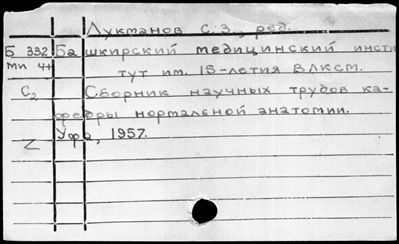 Лукманов С.З., ред.
Б 332 Башкирский медицинский инсти
ми 4+ тут им. 15-летия ВЛКСМ.
C2 Сборник научных трудов ка-
федры нормальной анатомии.
Уфа, 1957.